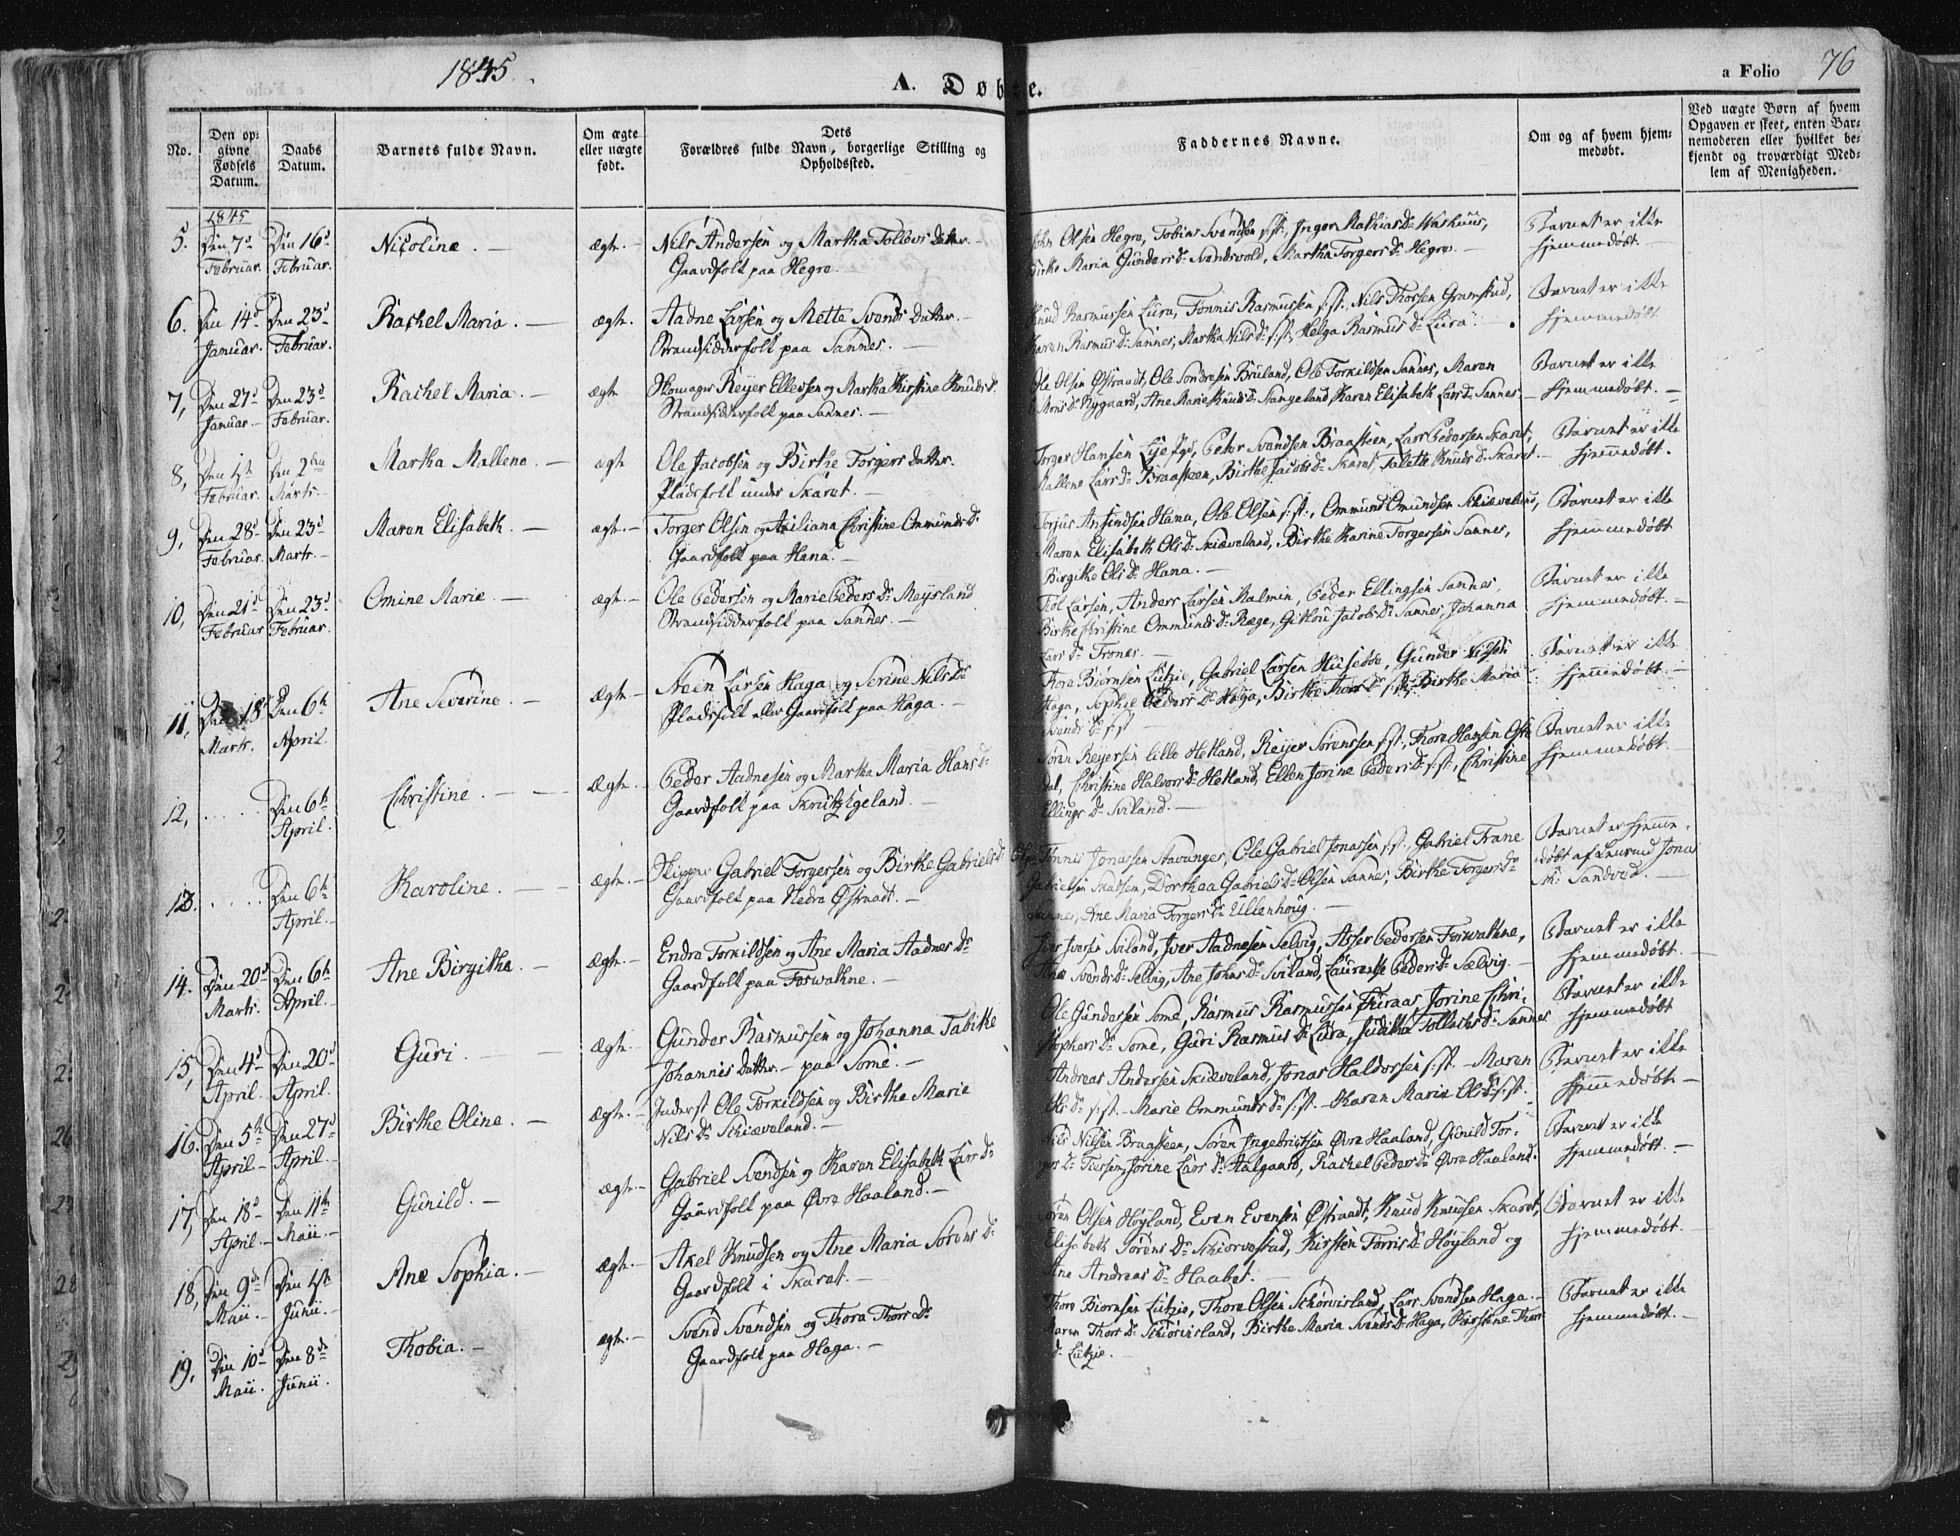 1845.
A. Døbte.
a Folio 76
No.
Den op=
givne
Fødsels
Datum.
Daabs
Datum.
Barnets fulde Navn.
Om ægte
eller uægte
født.
Dets
Forældres fulde Navn, borgerlige Stilling og
Opholdssted.
Faddernes Navne.
Om og af hvem hjem=
medøbt.
Ved uægte Børn af hvem
Opgaven er skeet, enten Bar=
nemoderen eller hvilket be=
kjendt og troværdigt Med=
lem af Menigheden.
1845
5. Den 7d Februar. Den 16d Februar. Nicoline. — ægte. —
Nils Andersen og Martha Tollevs Datter. —
Gaardfolk paa Hegre.
Olsen Hegre, Tobias Svendsen s:st:, Inger Mathias Dr Warhuus,
Birthe Maria Gunders Dr Svendsvold, Martha Torgers Dr Hegre. —
Barnet er ikke
hjemmedøbt. —
6. Den 14d Januar. Den 23d Februar. Rachel Maria. — ægte. —
Aadne Larsen og Mette Svends Datter. —
Strandsidderfolk paa Sannes. —
Knud Rasmussen Lura, Tønnis Rasmussen s:st:, Nils Thorsen Gramstad,
Karen Rasmus Dr Sannes, Martha Nils Dr s:st:, Helga Rasmus Dr Lura. —
Barnet er ikke
hjemmedøbt
7, Den 27d Januar — Den 23d Februar. Rachel Maria. — ægte
Skomager Reyer Ellevsen og Martha Kirstine Knuds Dr
Strandsidderfolk paa Sannes. —
Ole Olsen Østraadt, Ole Sørensen Bruland, Ole Torkildsen Sannes, Maren
Mons Dr Nygaard, Ane Marie Knuds Dr Stangeland, Karen Elisabeth Lars Dr Sannes —
Barnet er ikke
hjemmedøbt. —
8, Den 1ste Februar. Den 2den Marts — Martha Mallene. — ægte
Ole Jacobsen og Birthe Torgers Datter.
Pladsfolk under Skaret. —
Torger Hansen Lye, Peter Svendsen Braasteen, Lars Pedersen Skaret,
Mallene Lars Dr Braasteen, Birthe Jacobs Dr Skaret, Talette Knuds Dr Skaret —
Barnet er ikke
hjemmedøbt.
9, Den 28d Februar. Den 23d Marts — Maren Elisabeth. — ægte. —
Torger Olsen og Christine Ommunds Dr
Gaardfolk paa Hana. —
Torjus Hana, Ole Olsen s:st:, Ommund Omundsen Skiæveland,
Maren Elisabeth Ols Dr Skiæveland, Birthe Karine Torgersen Sannes,
Birgithe Ols Dr Hana. —
Barnet er ikke
hjemmedøbt
10, Den 21d Februar Den 23d Februar. Omine Marie — ægte. —
Ole Pedersen og Marie Peders Dr Meysland
Strandsidderfolk paa Sannes. —
Larsen, Anders Larsen Malmin, Peder Ellingsen Sannes,
Birthe Christine Ommunds Dr Ræge, Jacobs Dr Sannes, Johanna
Lars Dr Tronæs. —
Barnet er ikke
hjemmedøbt. —
11, Den 18 Marts. Den 6te April. Ane Severine. — Ægte. —
Sven Larsen Haga og Serine Nils Dr
Pladsfolk eller Gaardfolk paa Haga. —
Thore Biørnsen Lutzie, Gabriel Larsen Husebøe, Gunder Nilsen
Haga, Sophie Peders Dr Haga, Birthe Thors Dr s:st:, Birthe Maria
Svends Dr s:st: —
Barnet er ikke
hjemmedøbt. —
12, ..... Den 6te April. Christine. — — Ægte. —
Peder Aadnesen og Martha Maria Hans Dr
Gaardfolk paa Skrutzigeland. —
Søren Reyersen lille Hetland, Reyer Sørensen s:st:, Thore Hansen
dal, Christine Halvors Dr Hetland, Ellen Jorine Peders Dr s:st:, Christine
Ellings Dr Sviland. —
Barnet er ikke
hjemmedøbt. —
13. ..... Den 6te April. Karoline. — Ægte. —
Skipper Gabriel Torgersen og Birthe Gabriels Dr
Gaardfolk paa Nedre Østraadt. —
Tønnis Jonassen Stavanger, Ole Gabriel Jonassen s:st:, Gabriel Trane
Gabrielsen Skadsem, Dorthea Gabriels Dr Olsen Sannes, Birthe Torgers Dr
Sannes, Ane Maria Torgers Dr Ullenhoug. —
Barnet er hjemme-
døbt af Lensmd Jonas
Sandved. —
14. Den 20d Marts. Den 6te April. — Ane Birgitha. — Ægte. —
Endre Torkildsen og Ane Maria Aadnes Dr
Gaardfolk paa Foswathne. —
Iver Iversen Sviland, Iver Aadnesen Selvig, Asser Pedersen Foswathne,
Ane Svends Dr Selvig, Ane Jonas Dr Sviland, Laurentse Peders Dr Sælvig. —
Barnet er ikke
hjemmedøbt. —
15, Den 4d April. Den 20d April. Guri. — Ægte. —
Gunder Rasmussen og Johanna Tabithe
Johannis Datter. — paa Somé. —
Ole Gundersen Somé, Rasmus Rasmussen Furaas, Jorine Chri-
stophers Dr Somé, Guri Rasmus Dr Lura, Juditha Tollachs Dr Sannes
Barnet er ikke
hjemmedøbt
16. Den 5te April — Den 27d April. — Birthe Oline. — Ægte. —
Inderst Ole Torkildsen og Birthe Marie
Nils Dr Schiæveland. —
Andreas Andersen Skiæveland, Jonas Haldorsen s:st. — Maren
Ols Dr s:st. — Marie Ommunds Dr s:st. — Karen Marie Ols Dr s:st.
Barnet er ikke
hjemmedøbt —
17, Den 18d April — Den 11te Maii. — Gunild. — ægte. —
Gabriel Svendsen og Karen Elisabeth Lars Dr
Gaardfolk paa Øvre Haaland. —
Nils Nilsen Braasteen, Søren Ingebrigtsen Øvre Haaland, Gunild Tor-
gers Dr Jorine Lars Dr Aalgaard, Rachel Peders Dr Øvre Haaland.
Barnet er ikke
hjemmedøbt. —
18, Den 9de Maii. Den 1ste Junii. — Ane Sophia. — Ægte. —
Axel Knudsen og Ane Maria Sørens Dr
Gaardfolk i Skaret. —
Søren Olsen Høyland, Even Evensen Østraadt, Knud Knudsen Skaret,
Elisabeth Sørens Dr Kirsten Torris Dr Høyland og
Ane Andreas Dr Haabet. —
Barnet er ikke
hjemmedøbt. —
19, Den 10d Maii. Den 8de Junii. Thobia. — ægte. —
Svend Svendsen og Thora Thors Dr
Gaardfolk paa Haga. —
Thore Biørnsen Lutzie, Thore Olsen Schiørvisland, Lars Svendsen Haga. —
Maren Thors Dr Schiørvisland, Birthe Maria Svends Dr Haga, Kirstine Thors
Dr Lutzie. —
Barnet er ikke
hjemmedøbt. —